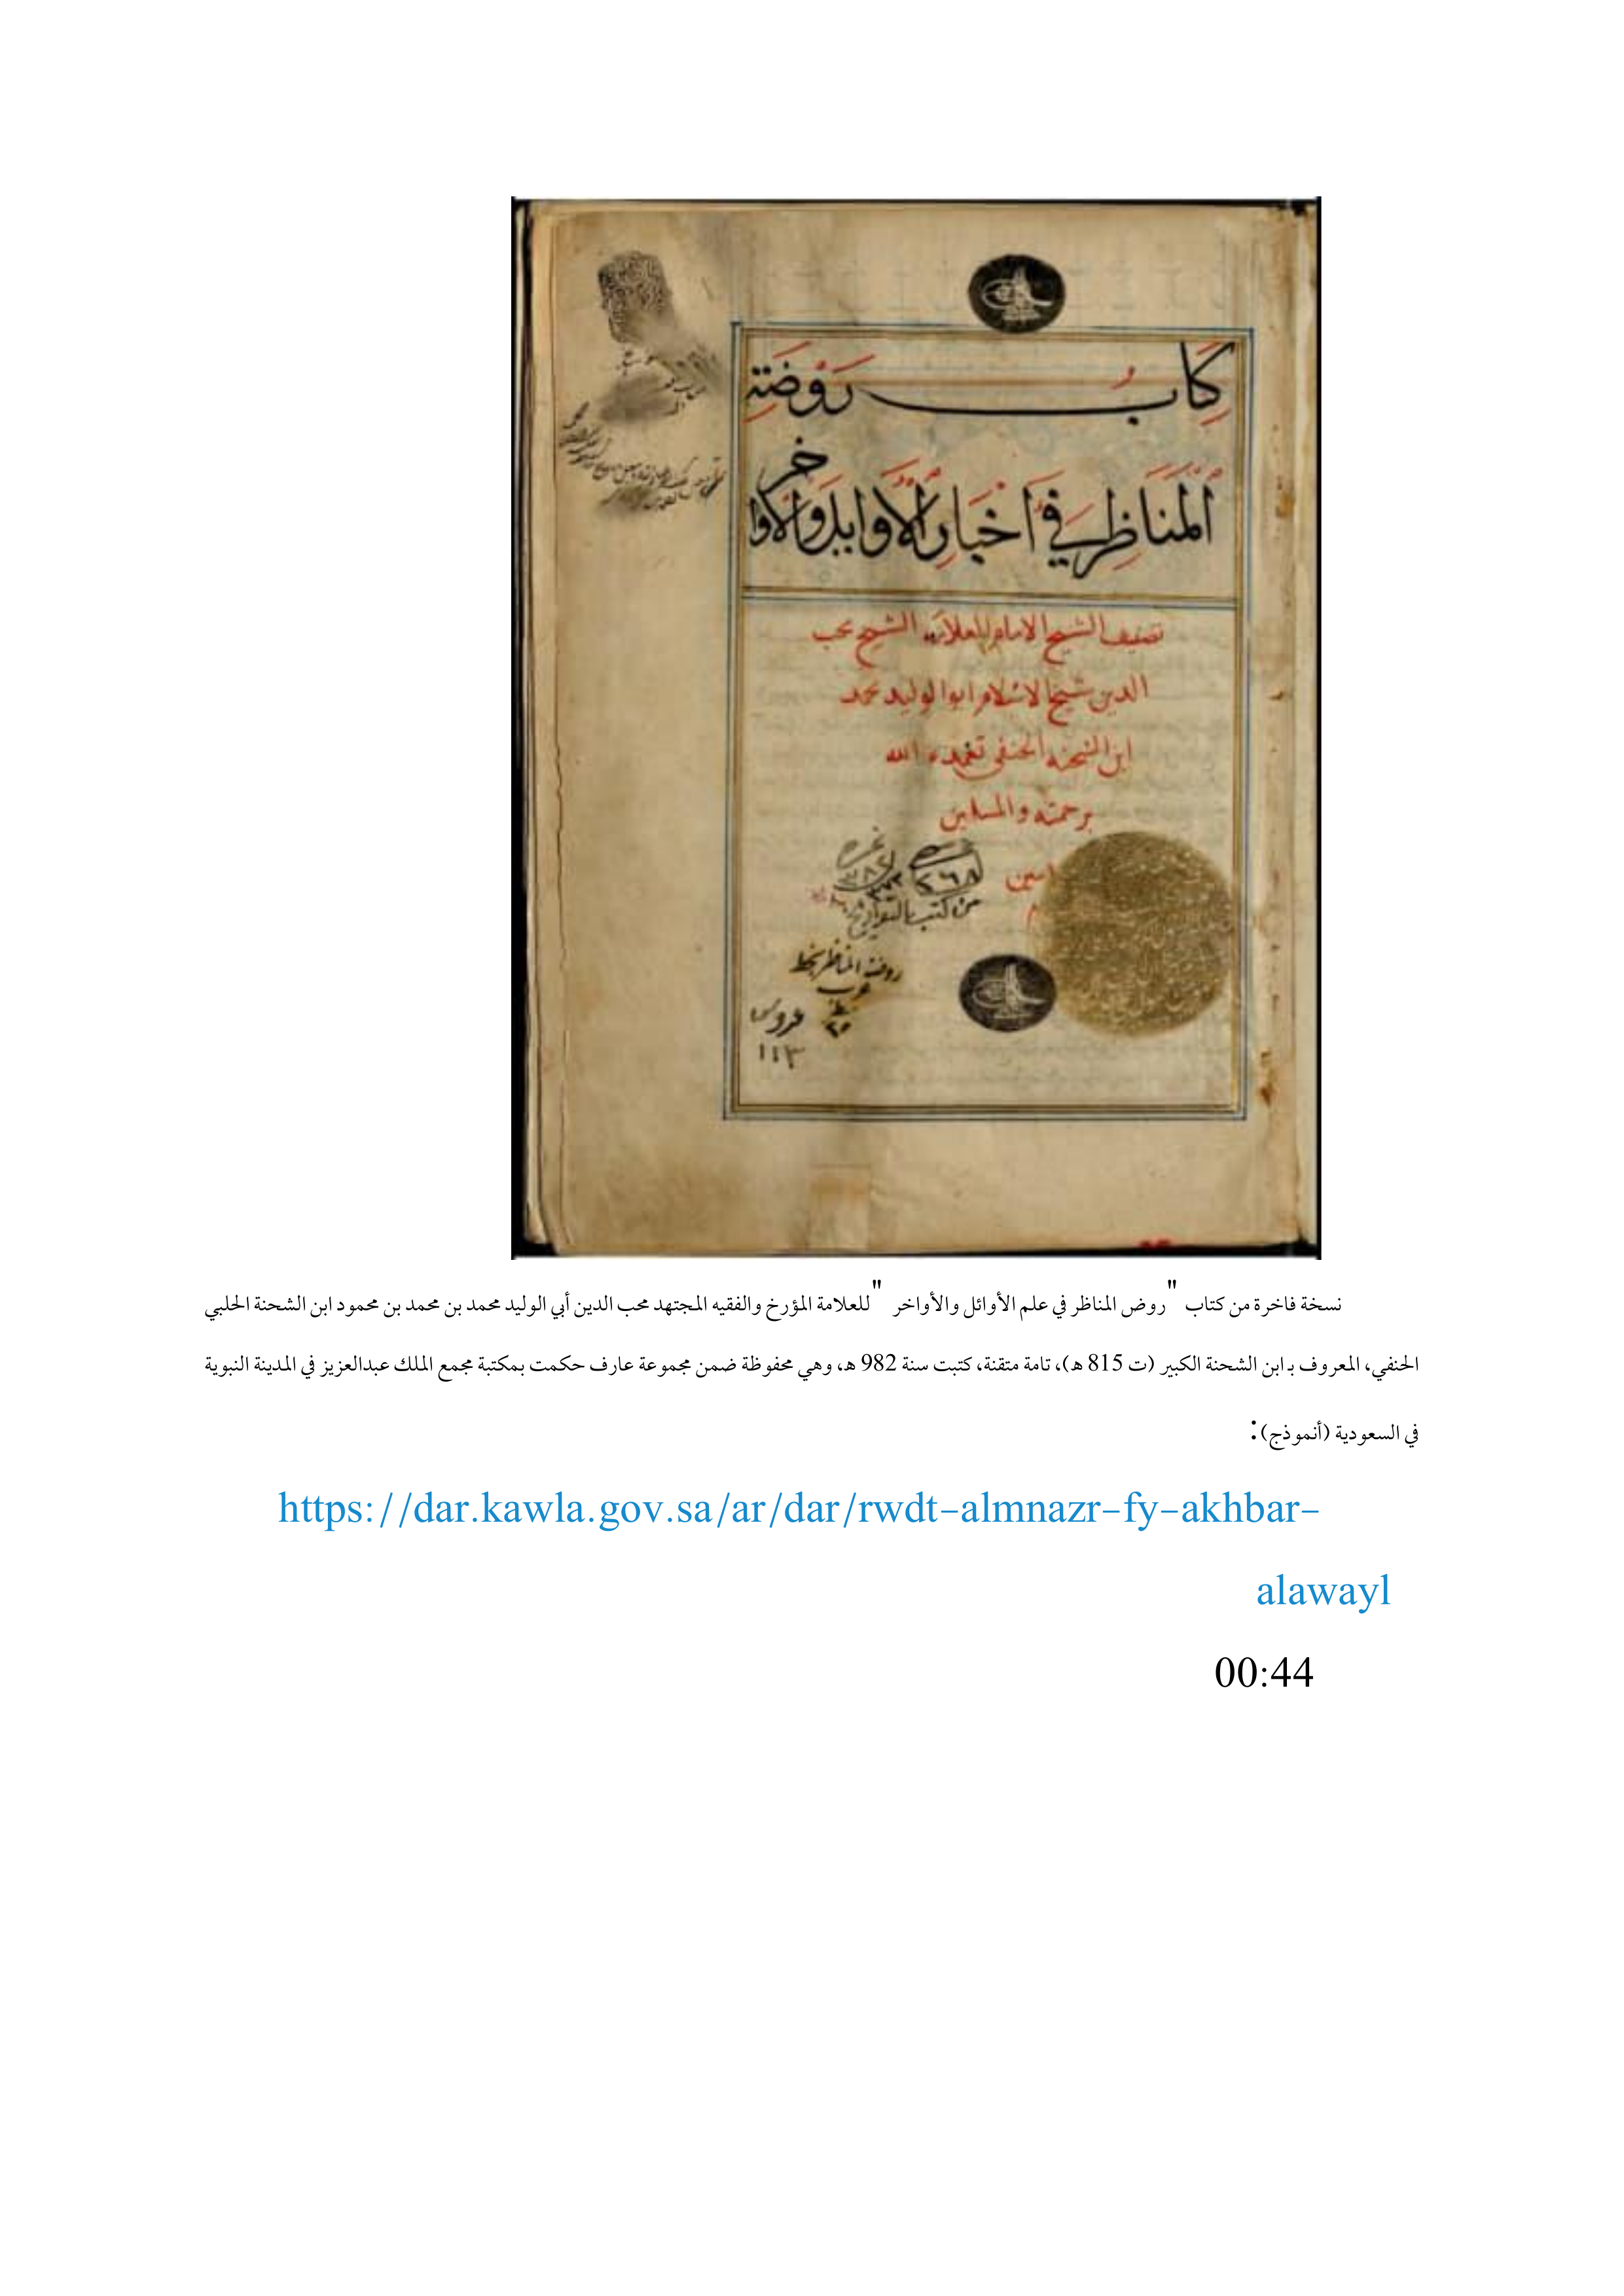 كِتَابُ رَوْضَةِ
اَلْمَنَاظِرِ فِي اَخْبَارِ الْاَوَايِلِ وَالْاَوَاخِرِ
تصنيف الشيخ الامام العلامه الشيخ محب
الدين شيخ الاسلام ابو الوليد محمد
ابن الشحنه الحنفى تغمده الله
برحمته والمسلمين
امين
٢٦٨
من كتب التواريخ
روضة المناظر بخط
عرب
١١٣
نسخة فاخرة من كتاب "روض المناظر في علم الأوائل والأواخر" للعلامة المؤرخ والفقيه المجتهد محب الدين أبي الوليد محمد بن محمد بن محمود ابن الشحنة الحلبي
الحنفي، المعروف بـ ابن الشحنة الكبير (ت 815 هـ)، تامة متقنة، كتبت سنة 982 هـ، وهي محفوظة ضمن مجموعة عارف حكمت بمكتبة مجمع الملك عبدالعزيز في المدينة النبوية
في السعودية (أنموذج):
https://dar.kawla.gov.sa/ar/dar/rwdt-almnazr-fy-akhbar-
alawayl
00:44